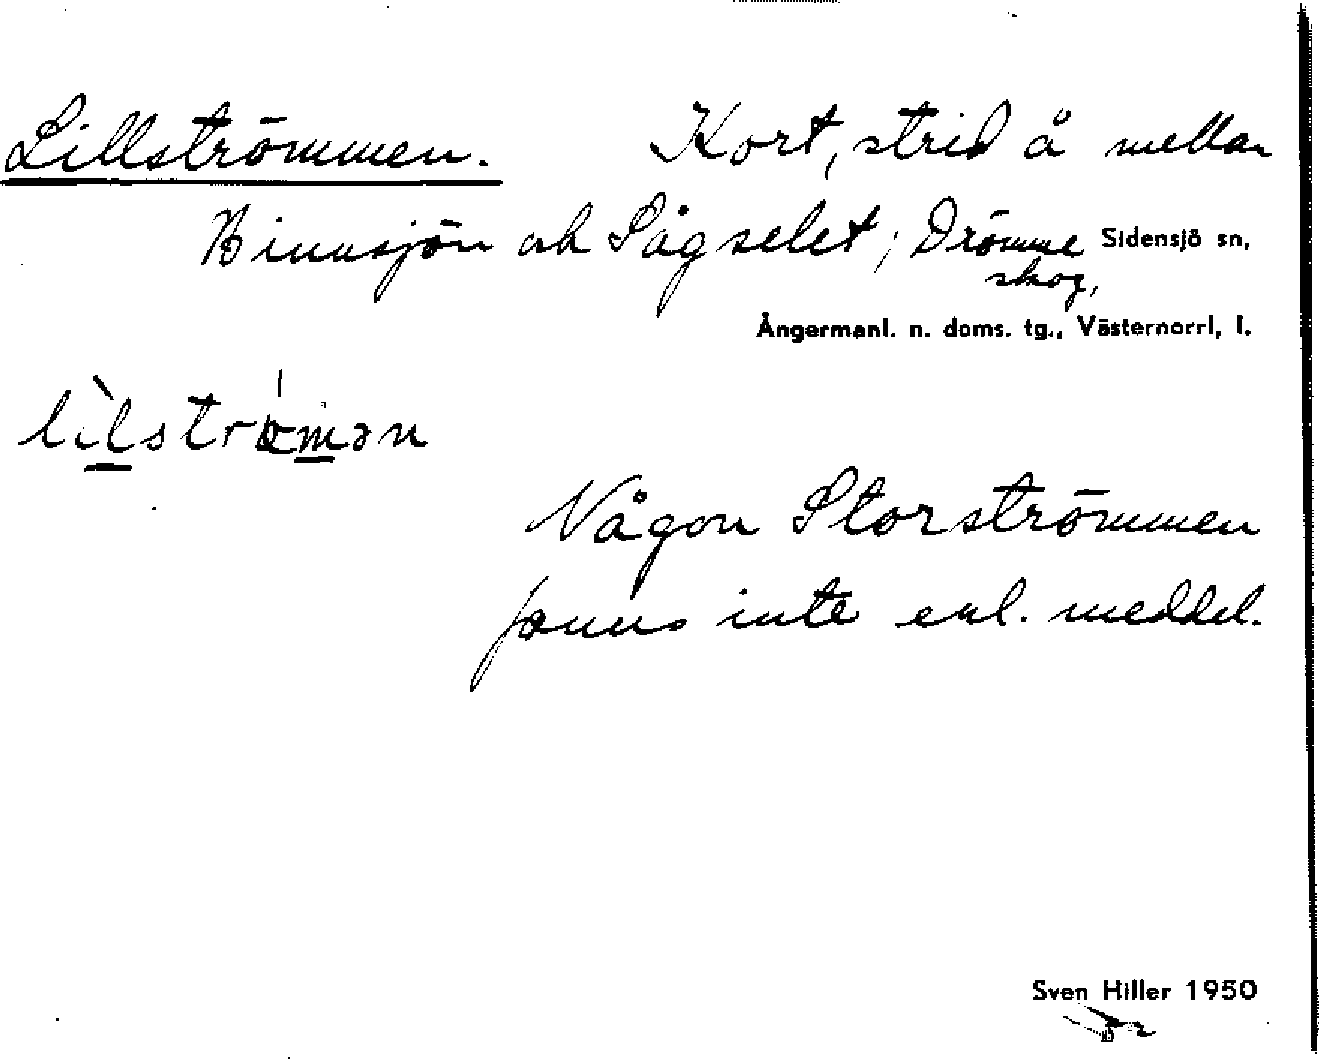 Lillströmmen. Kort, strid å mellan
Binnsjön och Sågselet; Drömme Sidensjö sn,
skog,
Ångermanl. n. doms. tg., Västernorrl. l.
Någon Storströmmen
fanns inte enl. meddel.
Sven Hiller 1950